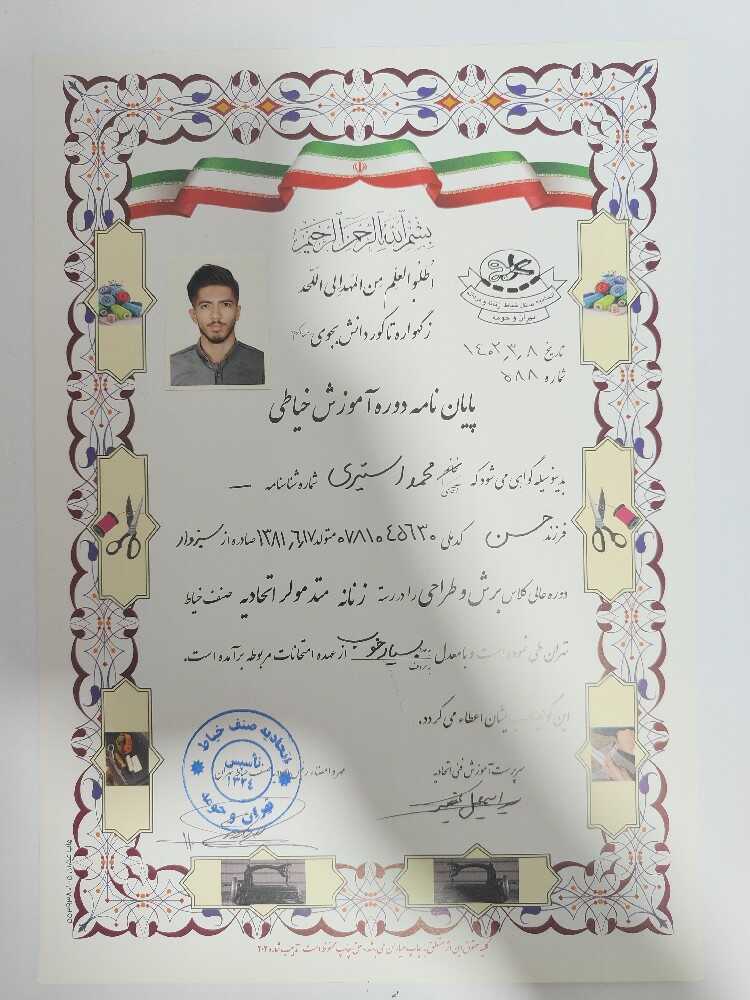 بسم الله الرحمن الرحیم
اطلبوا العلم من المهد الی اللحد
زگهواره تا گور دانش بجوی
تهران و حومه
تاریخ ۱۴۰۲/۳/۸
شماره ۵۸۸
پایان نامه دوره آموزش خیاطی
بدینوسیله گواهی می شود که محمد استیری شماره شناسنامه —
فرزند حسن کد ملی ۰۷۸۱۰۴۵۶۳۰ متولد ۱۳۸۱/۶/۱۷ صادره از سبزوار
دوره عالی کلاس برش و طراحی را در رسته زنانه متد مولر اتحادیه صنف خیاط
تهران طی نموده است و با معدل بسیار خوب از عهده امتحانات مربوطه برآمده است.
این گواهینامه بایشان اعطاء می گردد.
سرپرست آموزش فنی اتحادیه
مهر و امضاء رئیس اتحادیه صنف خیاط تهران
اتحادیه صنف خیاط
تأسیس
۱۳۲۴
تهران و حومه